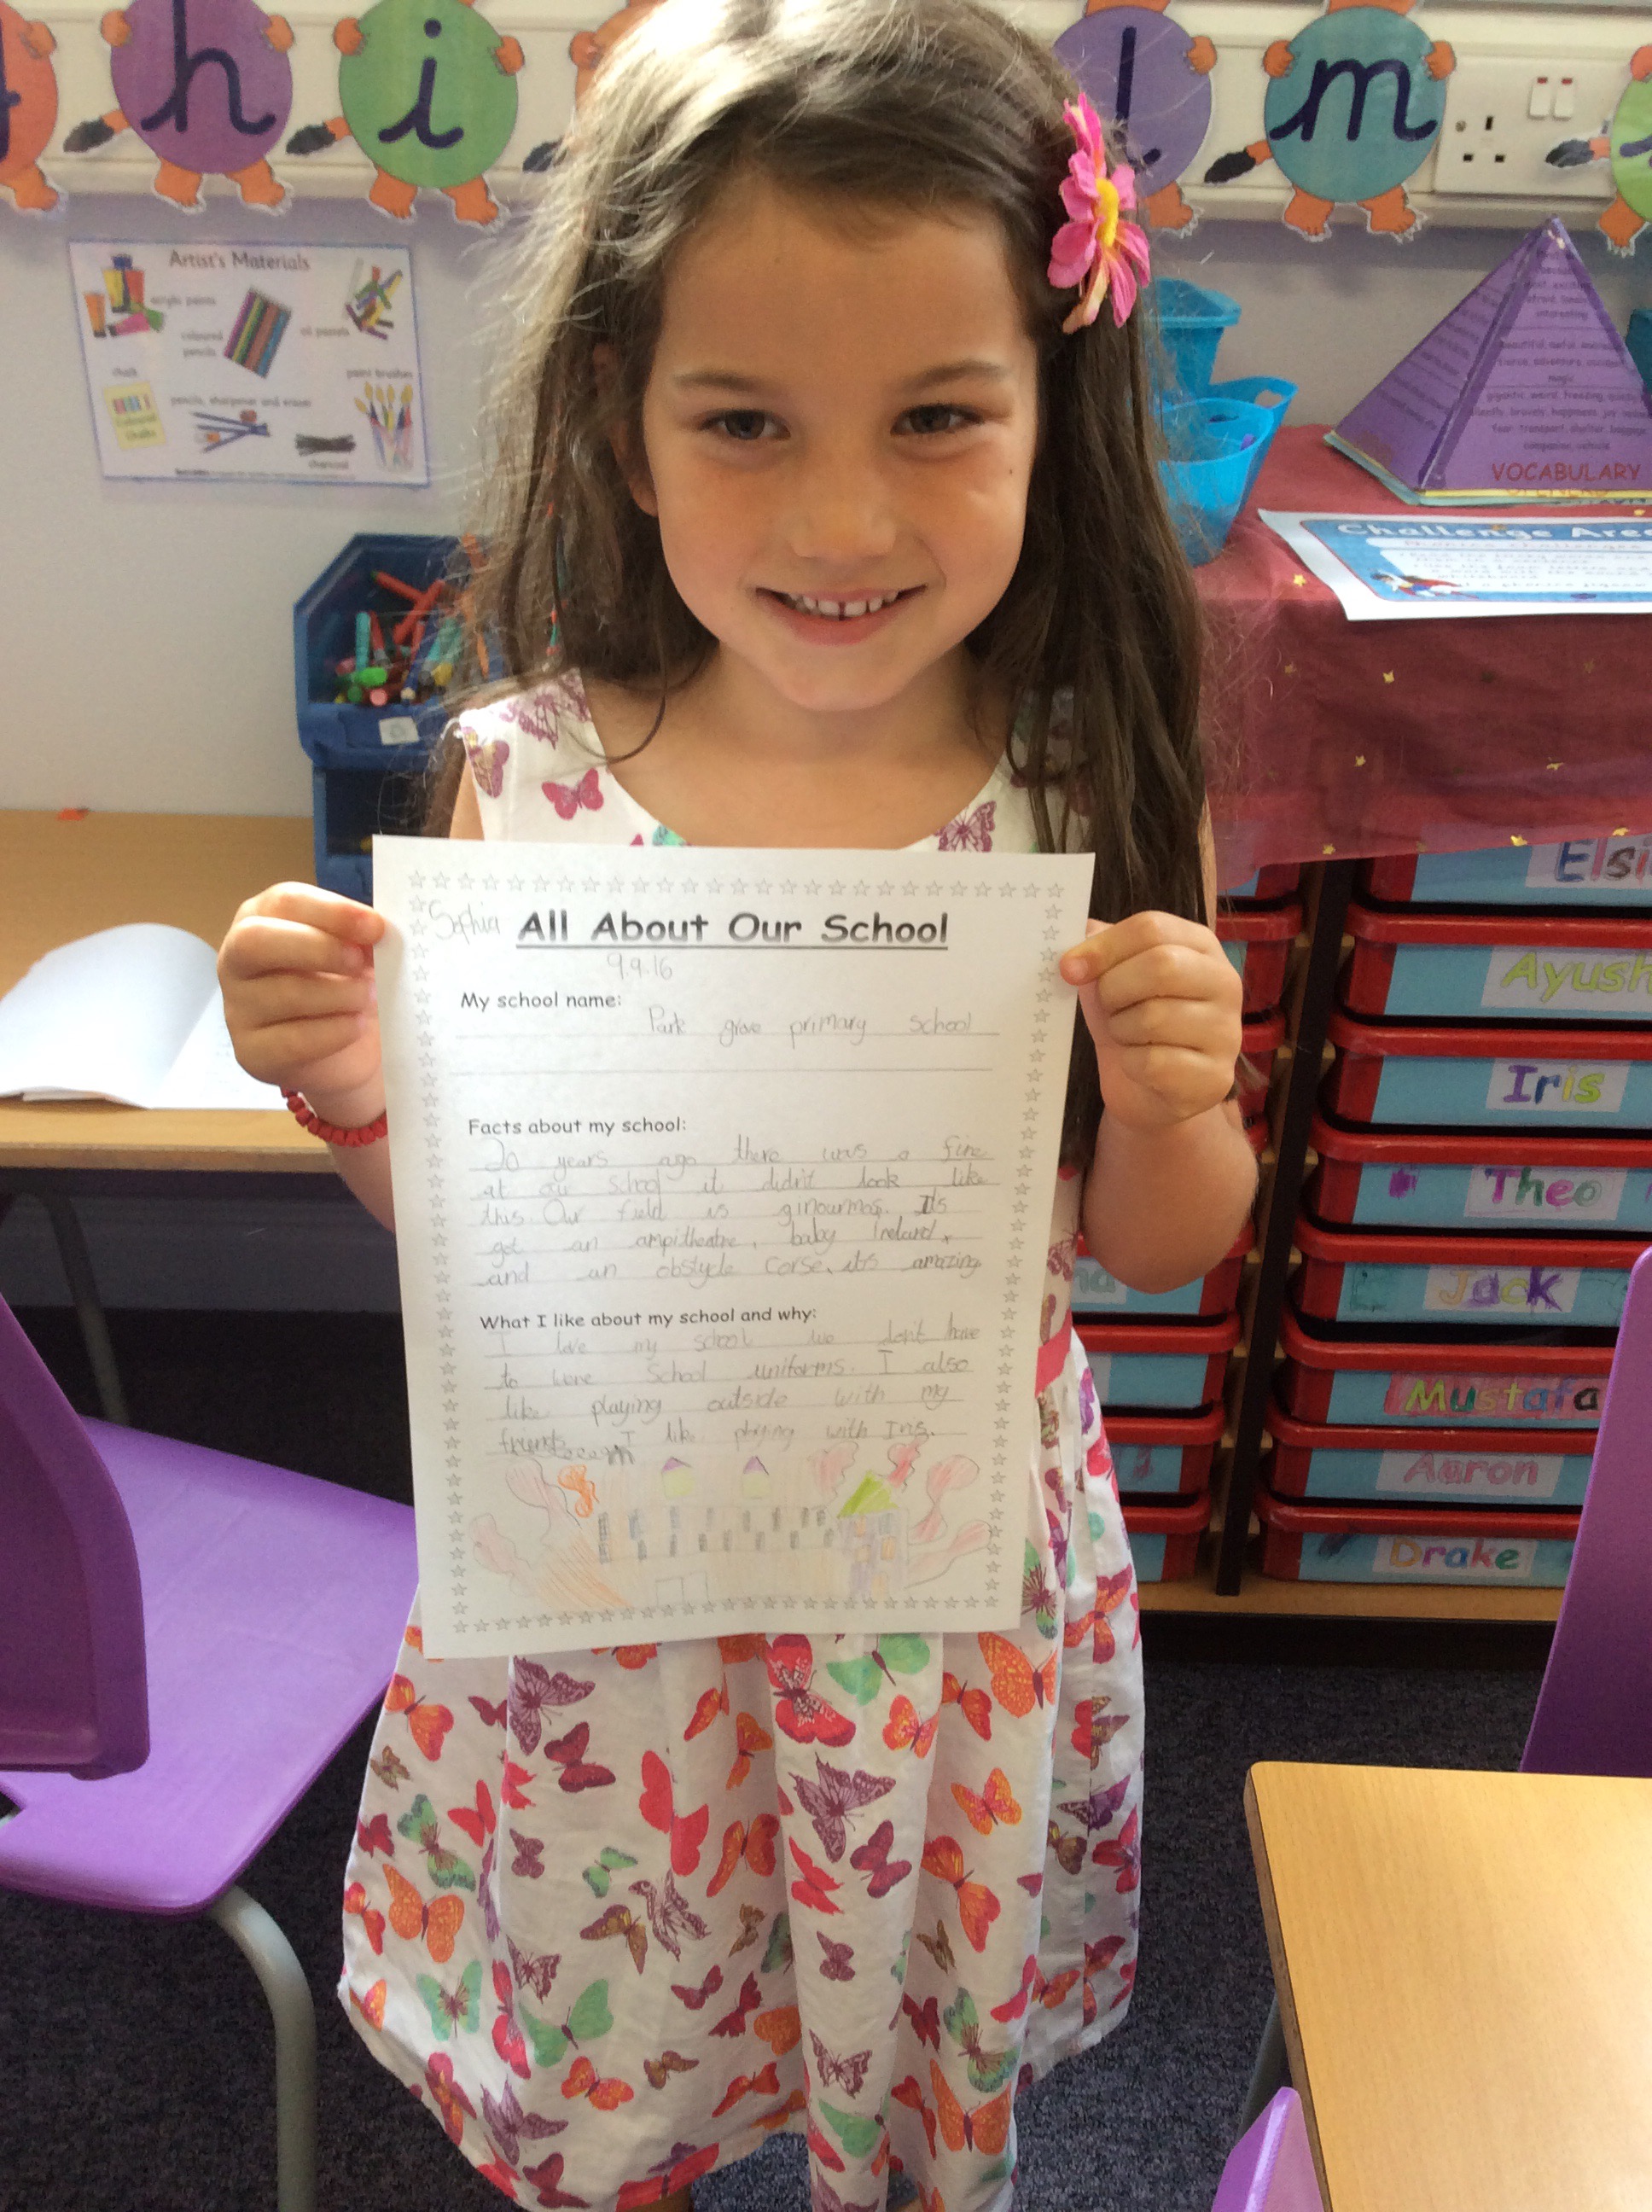 h i l m
Artist's Materials
acrylic paints
coloured pencils
oil pastels
chalk
paint brushes
pencils, sharpener and eraser
charcoal
VOCABULARY
Challenge Area
Elsi
Ayush
Iris
Theo
Jack
Mustafa
Aaron
Drake
Sophia All About Our School
9.9.16
My school name:
Park grove primary school
Facts about my school:
20 years ago there was a fire
at our school it didn't look like
this. Our field is ginourmas. It's
got an ampitheatre, baby Ireland,
and an obstycle corse, it's amazing
What I like about my school and why:
I love my school we don't have
to were school uniforms. I also
like playing outside with my
friends I like playing with Iris.